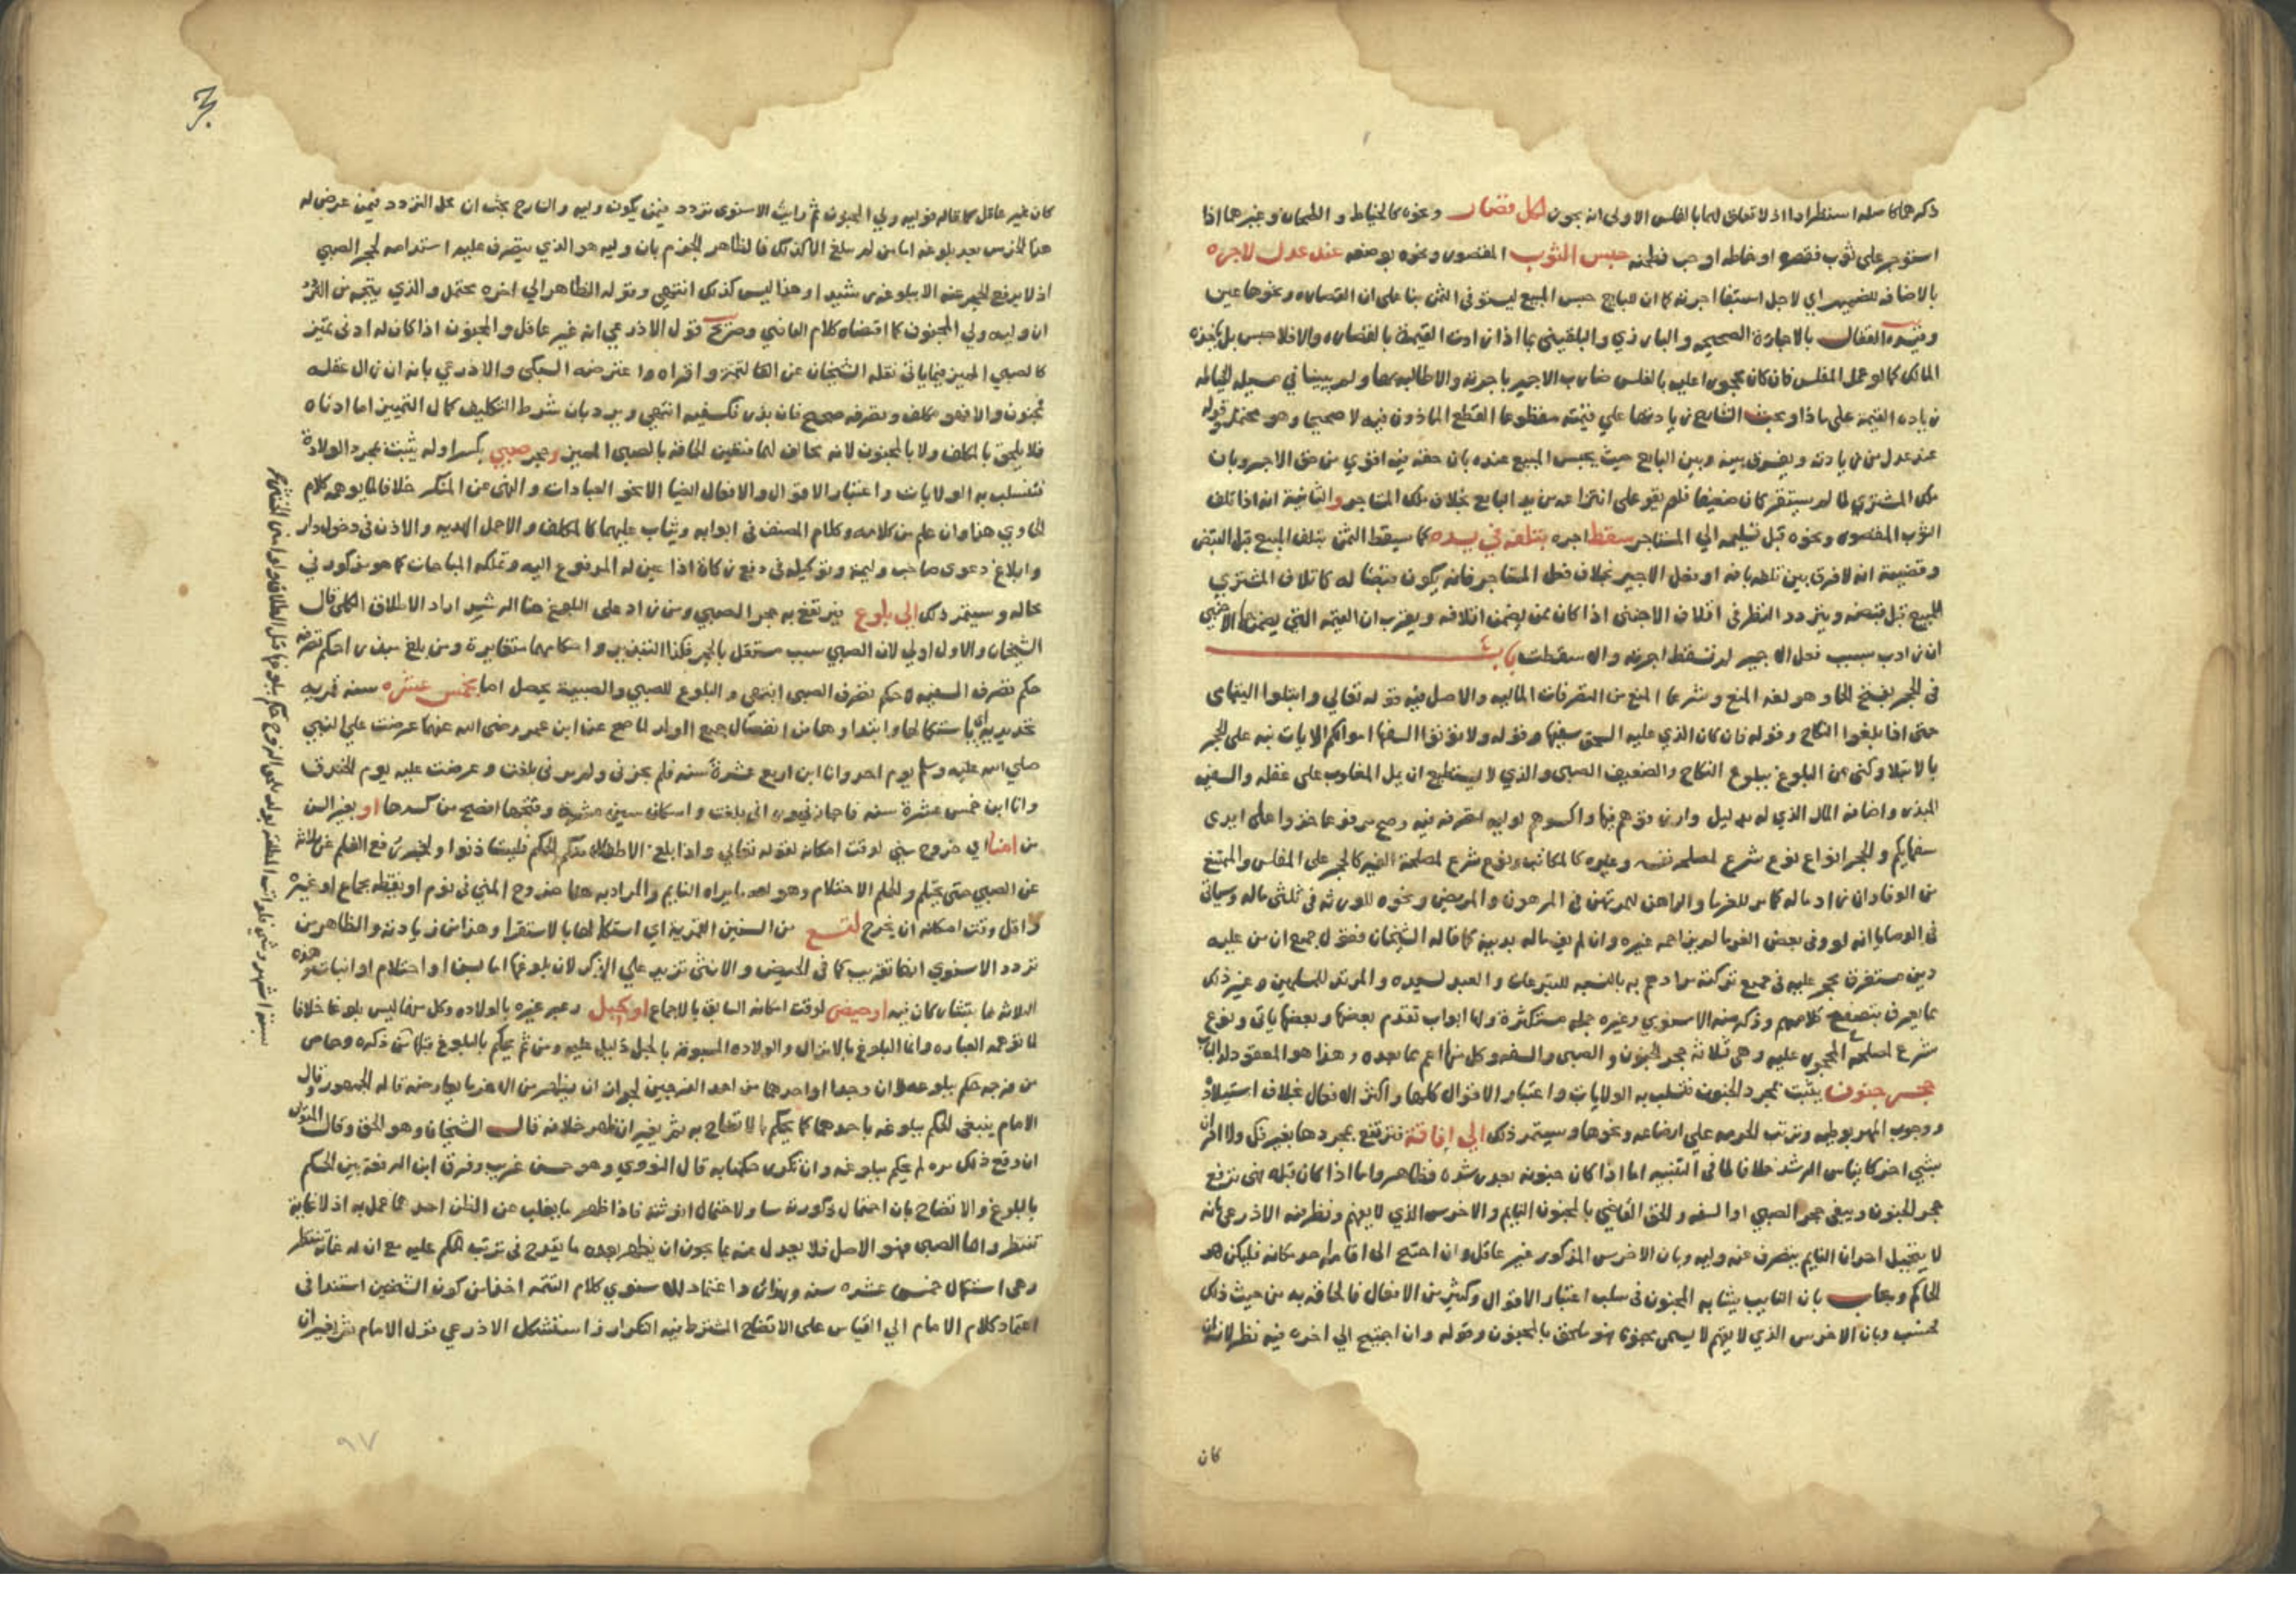 ذكرهما كاصله استطرادا اذ لا تعلق لهما بالفلس الاولى انه يجوز لكل قصار ونحوه كالخياط والطحان وغيرهما اذا
استوجر على ثوب فقصره او خاطه او حب فطحنه حبس الثوب المقصور ونحوه بوضعه عند عدل لاجره
بالاضافه للضمير اي لاجل استيفا اجرته كما ان للبايع حبس المبيع ليستوفى الثمن بنا على ان القصاره ونحوها عين
وقيده القفال بالاجارة الصحيحه والبارزي والبلقيني بما اذا زادت القيمة بالقصاره والا فلا حبس بل ياخذه
المالك كما لو عمل المفلس فان كان محجورا عليه بالفلس ضارب الاجير باجرته والا طالبه بها
زياده القيمة على ماذا وبحث الشارح زيادتها على قيمته مقطوعا القطع الماذون فيه لا صحيحا وهو محتمل وقوله
عند عدل من زيادته ويفرق بينه وبين البايع حيث يحبس المبيع عنده بان حقه فيه اقوى من حق الاجير وبان
ملك المشتري لما لم يستقر كان ضعيفا فلم يقو على انتزاعه من يد البايع بخلاف ملك المستاجر والثانية انه اذا تلف
الثوب المقصور ونحوه قبل تسليمه الي المستاجر سقط اجره بتلفه في يده كما يسقط الثمن بتلف المبيع قبل القبض
وقضيته انه لا فرق بين تلفه بافة او بفعل الاجير بخلاف فعل المستاجر فانه يكون قبضا له كاتلاف المشتري
المبيع قبل قبضه ويتردد النظر في اتلاف الاجنبى اذا كان ممن يضمن اتلافه ويقرب ان القيمه التي يضمنها الاجنبي
ان زادت بسبب فعل الاجير لم تسقط اجرته والا سقطت باب
فى الحجر بفتح الحا وهو لغة المنع وشرعا المنع من التصرفات الماليه والاصل فيه قوله تعالي وابتلوا اليتامى
حتى اذا بلغوا النكاح وقوله فان كان الذي عليه الحق سفيها وقوله ولا تؤتوا السفها اموالكم الايات نبه على الحجر
بالابتلا وكنى عن البلوغ ببلوغ النكاح والضعيف الصبى والذي لا يستطيع ان يمل المغلوب على عقله والسفيه
المبذر واضافة المال الذي له بدليل وارزقوهم فيها واكسوهم لوليه لتصرفه فيه وصح مرفوعا خذوا على ايدى
سفهايكم والحجر انواع نوع شرع لمصلحه نفسه وغيره كالمكاتب ونوع شرع لمصلحة الغير كالحجر على المفلس والممتنع
من الوفا وان زاد ماله كما مر للغرما والراهن للمرتهن في المرهون والمريض ونحوه للورثه فى ثلثى ماله وسياتى
فى الوصايا انه لو وفى بعض الغرما لم يزاحمه غيره وان لم يف ماله بدينه كما قاله الشيخان فقول جمع ان من عليه
دين مستغرق يحجر عليه فى جميع تركته مرادهم به بالنسبه للتبرعات والعبد لسيده والمرتد للمسلمين وغير ذلك
مما يعرف بتصفح كلامهم وذكر منه الاسنوي وغيره جمله مستكثرة ولها ابواب تقدم بعضها وبعضها ياتى ونوع
شرع لمصلحة المحجور عليه وهى ثلاثة حجر الجنون والصبى والسفه وكل منها اعم مما بعده وهذا هو المعقود له الباب
حجر جنون يثبت بمجرد الجنون فتسلب به الولايات واعتبار الاقوال كلها واكثر الافعال بخلاف استيلاد
ووجوب المهر بوطيه وترتب الحرمه على ارضاعه ونحوها ويستمر ذلك الي افاقة فترتفع بمجردها بغير فك ولا اقتران
بشي اخر كايناس الرشد خلافا لما فى التنبيه اما اذا كان جنونه بعد رشده فظاهر واما اذا كان قبله فهى ترفع
حجر الجنون ويبقى حجر الصبي او السفه والحق القاضي بالمجنون النايم والاخرس الذي لا يفهم ونظر فيه الاذرعى بانه
لا يتخيل احد ان النايم يتصرف عنه وليه وبان الاخرس المذكور غير عاقل وان احتيج الى اقامة احد مكانه فليكن هو
الحاكم ويجاب بان النايب يشابه المجنون فى سلب اعتبار الاقوال وكثير من الافعال فالحاقه به من حيث ذلك
فحسب وبان الاخرس الذي لا يفهم لا يسمى مجنونا فهو ملحق بالمجنون وقوله وان احتيج الي اخره فيه نظر لانه ان
كان
كان غير عاقل كما قاله فوليه ولي المجنون ثم رايت الاسنوى تردد فيمن يكون وليه والشارح بحث ان محل التردد فيمن عرض له
هذا الخرس بعد بلوغه اما من لم يبلغ الا كذلك فالظاهر الجزم بان وليه هو الذي يتصرف عليه استدامه لحجر الصبي
اذ لا يرتفع الحجر عنه الا ببلوغه رشيدا وهذا ليس كذلك انتهى وقوله الظاهر الي اخره محتمل والذي يتجه
ان وليه ولي المجنون كما اقتضاه كلام القاضي وصرح قول الاذرعي انه غير عاقل والمجنون اذا كان له ادنى تمييز
كالصبي المميز فيما ياتى نقله الشيخان عن التتمة واقراه واعترضه السبكى والاذرعي بانه ان زال عقله
فمجنون والا فهو مكلف وتصرفه صحيح فان بذر فكسفيه انتهى ويرد بان شرط التكليف كمال التمييز اما ادناه
فلا يلحق بالمكلف ولا بالمجنون لانه يخالف لهما فتعين الحاقه بالصبى المميز وحجر صبي بكسر اوله يثبت بمجرد الولادة
فتسلب به الولايات واعتبار الاقوال والافعال ايضا الا نحو العبادات والنهى عن المنكر خلافا لما يوهمه كلام
الحاوي هنا وان علم من كلامه وكلام المصنف فى ابوابه ويثاب عليها كالمكلف والا حمل الهديه والاذن فى دخول دار
وابلاغ دعوى صاحب وليمة وتوكيله فى دفع زكاة اذا عين له المدفوع اليه وتملكه المباحات كما هو مذكور في
محاله ويستمر ذلك الى بلوغ فيرتفع به حجر الصبي ومن زاد على البلوغ هنا الرشد اراد الاطلاق الكلى قال
الشيخان والاول اولي لان الصبي سبب مستقل بالحجر فكذا التبذير واحكامهما متغايرة ومن بلغ مبذرا حكم تصرفه
حكم تصرف السفيه لا حكم تصرف الصبى انتهى والبلوغ للصبي والصبية يحصل اما بخمس عشره سنه قمريه
تحديديه اي باستكمالها وابتداوها من انفصال جميع الولد لما صح عن ابن عمر رضى الله عنهما عرضت علي النبي
صلي الله عليه وسلم يوم احد وانا ابن اربع عشرة سنه فلم يجزنى ولم يرنى بلغت وعرضت عليه يوم الخندق
وانا ابن خمس عشرة سنه فاجازني وراني بلغت واسكان شين عشرة وفتحها افصح من كسرها او بغير السن
من امنا اي خروج مني لوقت امكانه لقوله تعالي واذا بلغ الاطفال منكم الحلم فليستاذنوا ولخبر رفع القلم عن ثلاثة
عن الصبي حتى يحتلم والحلم الاحتلام وهو لغه ما يراه النايم والمراد به هنا خروج المنى فى نوم او يقظه بجماع او غيره
واقل وقت امكانه ان يخرج لتسع من السنين القمرية اي استكمالها بالاستقرا وهذا من زيادته والظاهر من
تردد الاسنوي انها تقريب كما في الحيض والانثى تزيد على الذكر لان بلوغها اما بسن او احتلام او انبات وهذه
الثلاثة ما يتشاركان فيه او حيض لوقت امكانه السابق بالاجماع او حبل وعبر غيره بالولاده وكل منهما ليس بلوغا خلافا
لما توهمه العباره وانما البلوغ بالانزال والولاده المسبوقة بالحبل دليل عليه ومن ثم يحكم بالبلوغ قبلها
من فرجه حكم ببلوغه لا ان وجدا او احدهما من احد الفرجين لجواز ان يظهر من الاخر ما يعارضه قاله الجمهور وقال
الامام ينبغى الحكم ببلوغه باحدهما كما يحكم بالاتضاح به ثم يغير ان ظهر خلافه قال الشيخان وهو الحق وقال المتولي
ان وقع ذلك مره لم يحكم ببلوغه وان تكرر حكمنا به قال النووي وهو حسن غريب وفرق ابن الرفعة بين الحكم
بالبلوغ والاتضاح بان احتمال ذكورته مساو لاحتمال انوثته فاذا ظهر ما يغلب من الظن احدهما عمل به اذ لا غاية
تنتظر واما الصبى فهو الاصل فلا يعدل عنه بما يجوز ان يظهر بعده ما يقدح فى ترتب الحكم عليه مع ان له غاية تنتظر
وهى استكمال خمس عشره سنه واعتماد الاسنوي كلام التتمه اخذا من كون الشيخين استندا فى
اعتماد كلام الامام الي القياس على الاتضاح المشترط فيه التكرار واستشكل الاذرعي قول الامام ثم يغير ان
٩٧